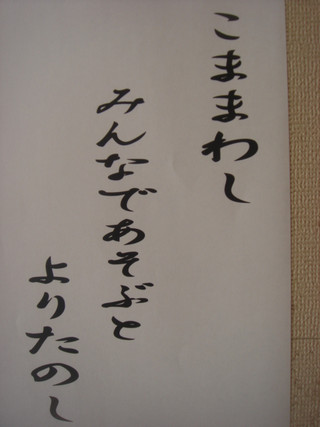 こままわし
みんなであそぶと
よりたのし